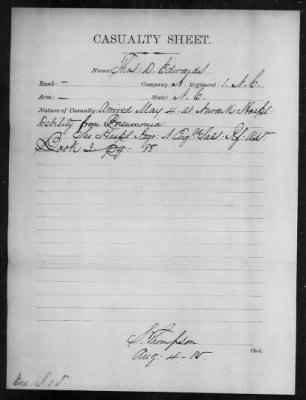 CASUALTY SHEET.
Name: Thos. D. Edwards
Rank: - Company: A Regiment: 1. N. C.
Arm: - State: N. C.
Nature of Casualty: Arrived May 4 at Newark Hospl
Debility from Pneumonia
See Hospl
Book 2 Pg. 88
S. Thompson
Clerk.
Aug. 4-85